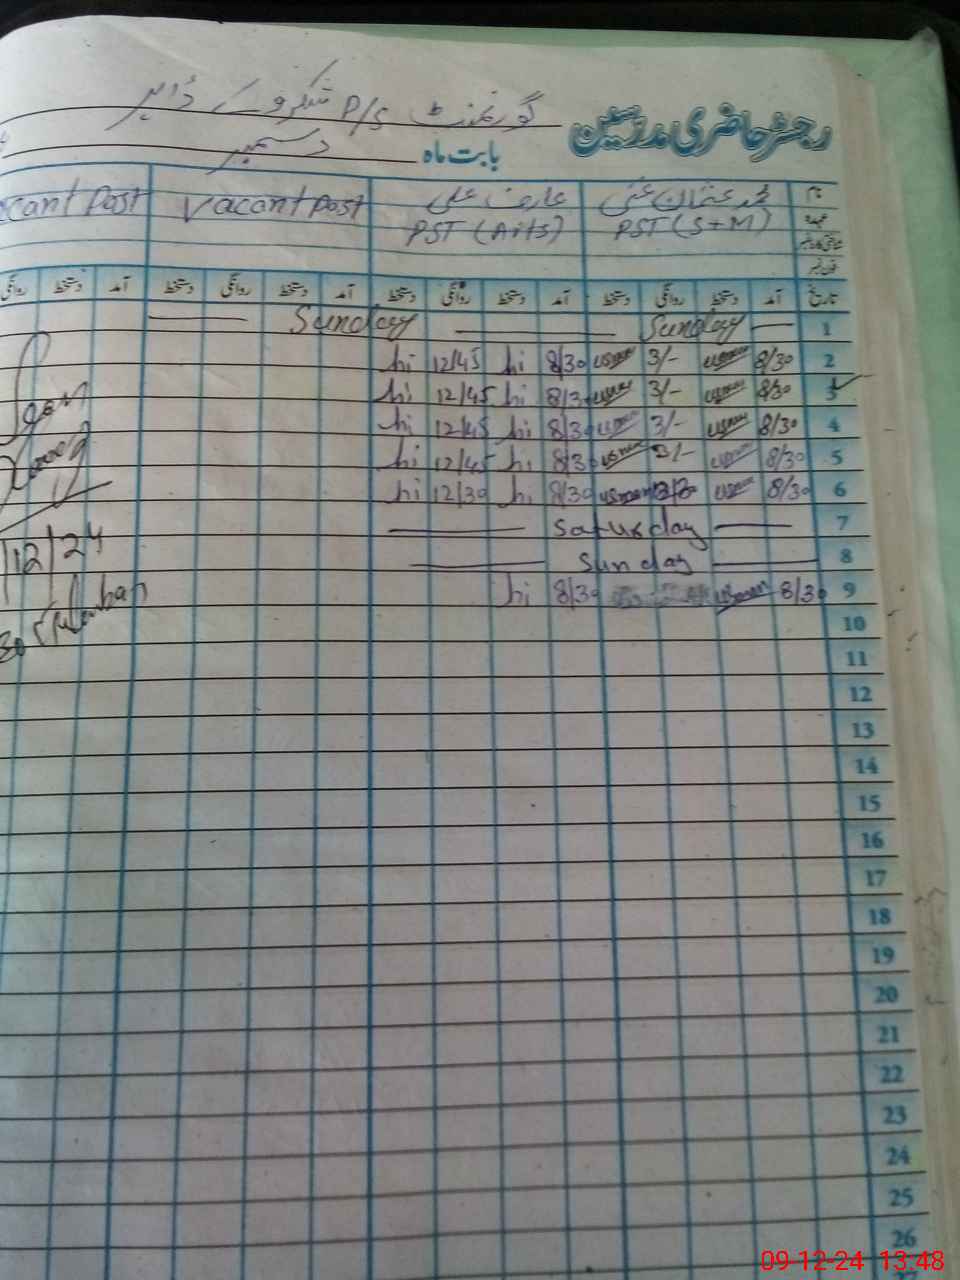 رجسٹر حاضری مدرسین گورنمنٹ P/S
بابت ماہ دسمبر
نام محمد عثمان غنی عارف علی Vacant Post cant Post
عہدہ PST (S+M) PST (Arts)
شناختی کارڈ نمبر
فون نمبر
تاریخ آمد دستخط روانگی دستخط آمد دستخط روانگی دستخط آمد دستخط روانگی دستخط آمد دستخط روانگی
1 Sunday Sunday
2 8/30 usman 3/- usman 8/30 hi 12/45 hi
3 8/30 usman 3/- usman 8/30 hi 12/45 hi
4 8/30 usman 3/- usman 8/30 hi 12/45 hi
5 8/30 usman 3/- usman 8/30 hi 12/45 hi
6 8/30 usman usman 8/30 hi 12/30 hi
7 Saturday
8 Sunday
9 8/30 usman 8/30 hi
Seen
12/24
10
11
12
13
14
15
16
17
18
19
20
21
22
23
24
25
26
09-12-24 13:48